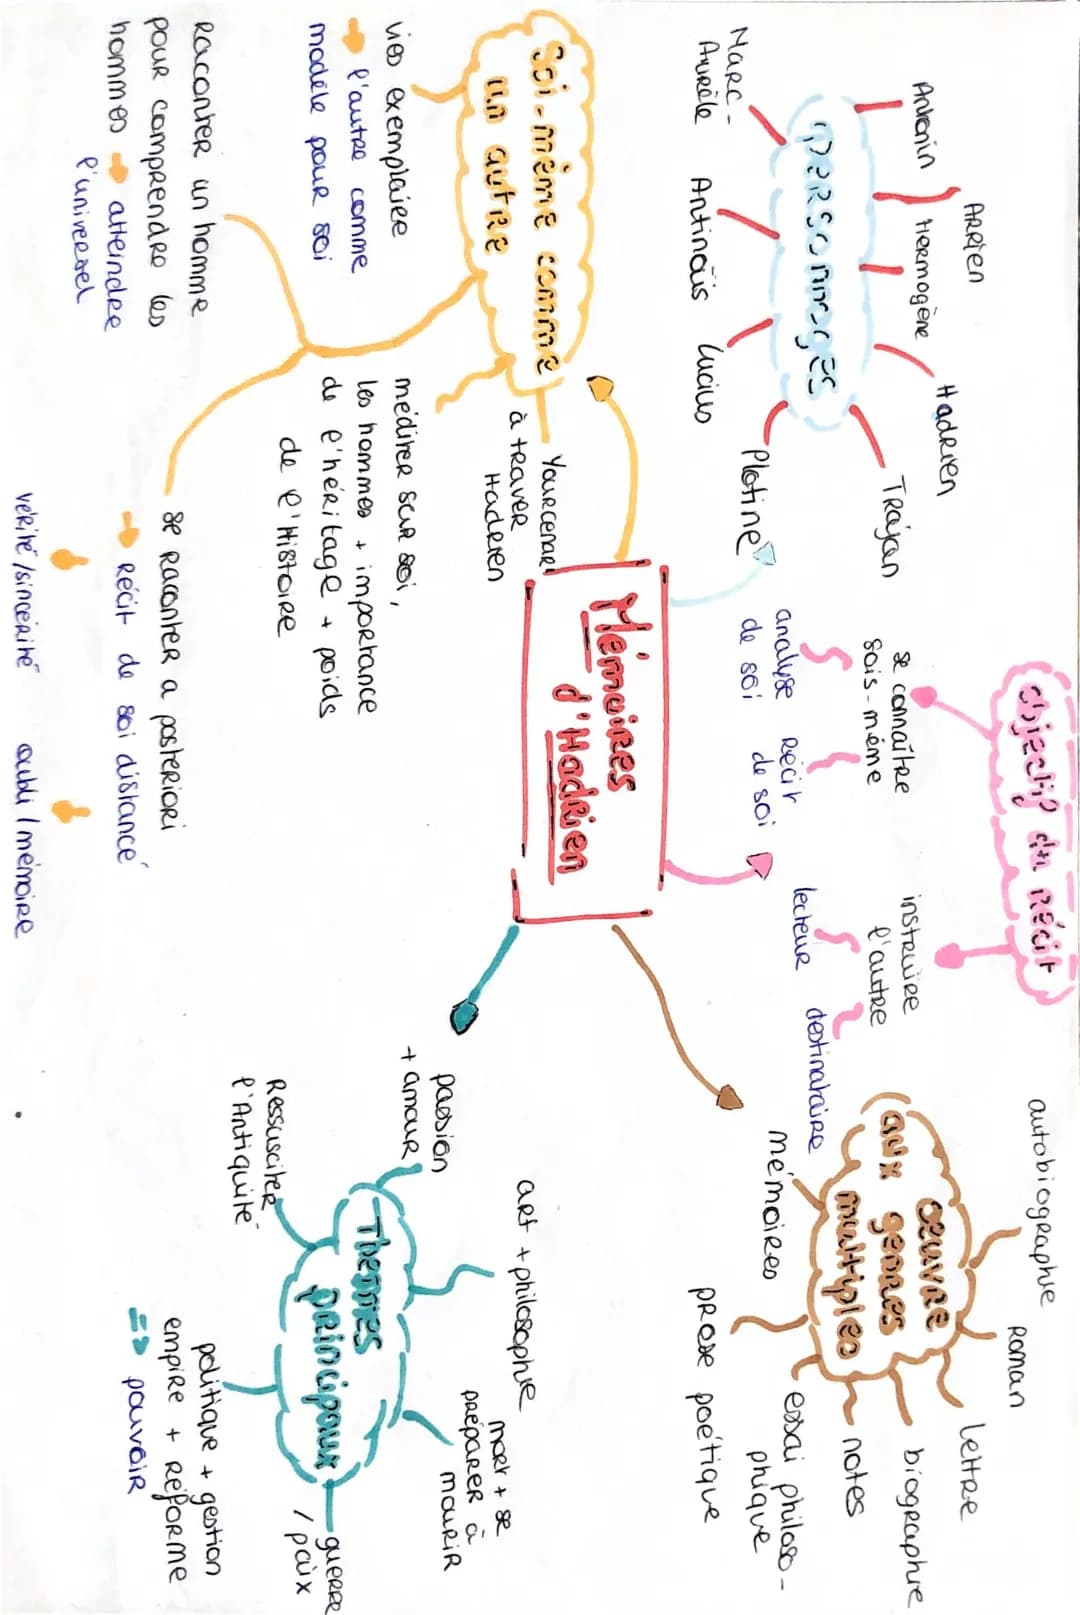 Mémoires
d'Hadrien
personnages
Antonin
Arrien
Hermogène
Hadrien
Trajan
Marc-
Aurèle
Antinoüs
Lucius
Plotine
objectif du récit
se connaître
sois-même
analyse
de soi
récit
de soi
instruire
l'autre
lecteur
destinataire
œuvre
aux genres
multiples
autobiographie
Roman
lettre
biographie
notes
essai philoso-
phique
prose poétique
mémoires
Soi-même comme
un autre
Yourcenar
à traver
Hadrien
vies exemplaire
→ l'autre comme
modèle pour soi
méditer sur soi,
les hommes + importance
de l'héritage + poids
de l'Histoire
Raconter un homme
pour comprendre les
hommes → atteindre
l'universel
se raconter a posteriori
→ récit de soi distancé
vérité/sincérité
oubli/mémoire
Thèmes
principaux
passion
+ amour
art + philosophie
mort + se
préparer à
mourir
guerre
/ paix
politique + gestion
empire + réforme
=> pouvoir
Ressusciter
l'Antiquité